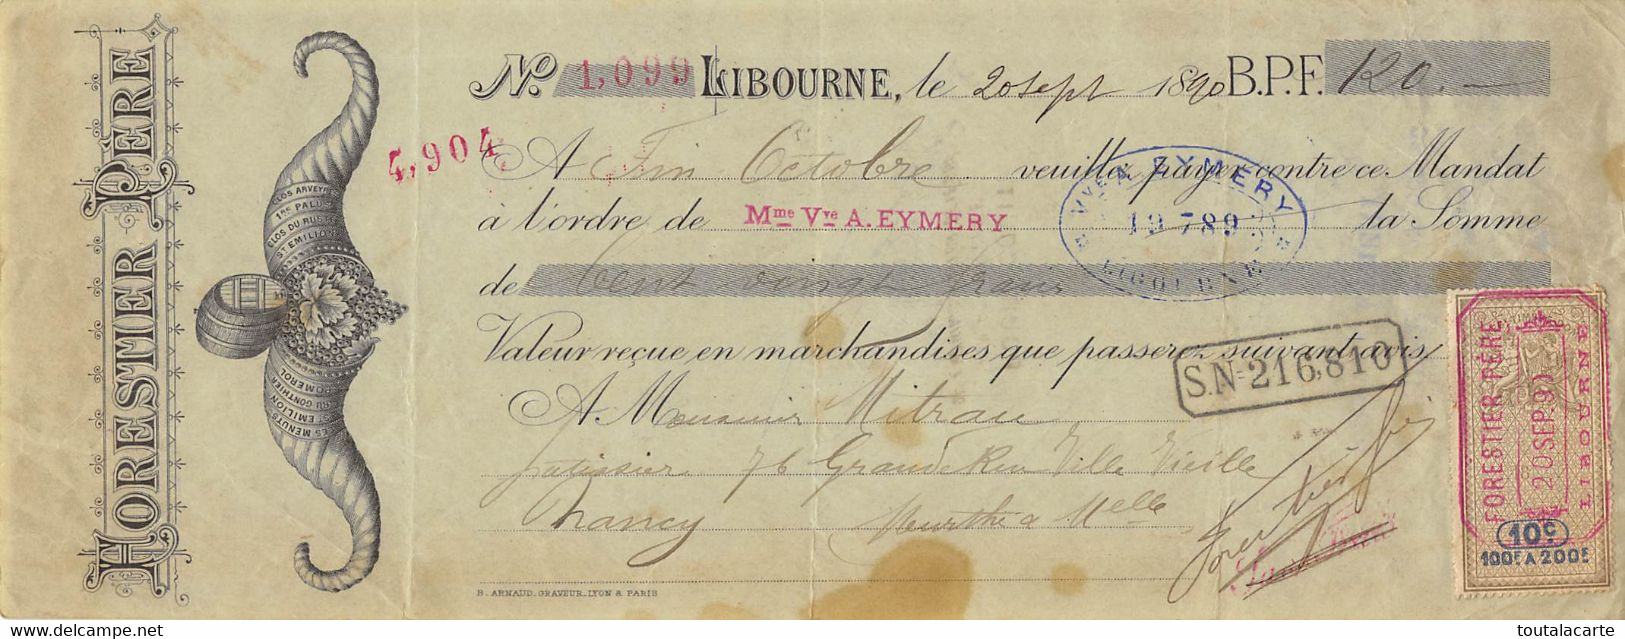 FORESTIER PÈRE
CLOS ARVEYRES
1RS PALUS
CLOS DU RUSTE
ST EMILION
POMEROL
CRU GONTHIER
ST EMILION
LES MENUTS
No. 1,099 LIBOURNE, le 20 Sept 1890 B.P.F. 120.
4,904
A Fin Octobre veuillez payer contre ce Mandat
à l'ordre de Mme Vve A. EYMERY la Somme
VVE A. EYMERY
19789
LIBOURNE
de Cent vingt francs
Valeur reçue en marchandises que passerez suivant avis
S.N= 216,810
A Monsieur Mitrau
patissier 76 Grande Rue Ville Vieille
Nancy Meurthe & Melle
Forestier Père
B. ARNAUD. GRAVEUR. LYON & PARIS
FORESTIER PÈRE
20 SEP. 90
LIBOURNE
10c
100F A 200F
www.delcampe.net
toutalacarte